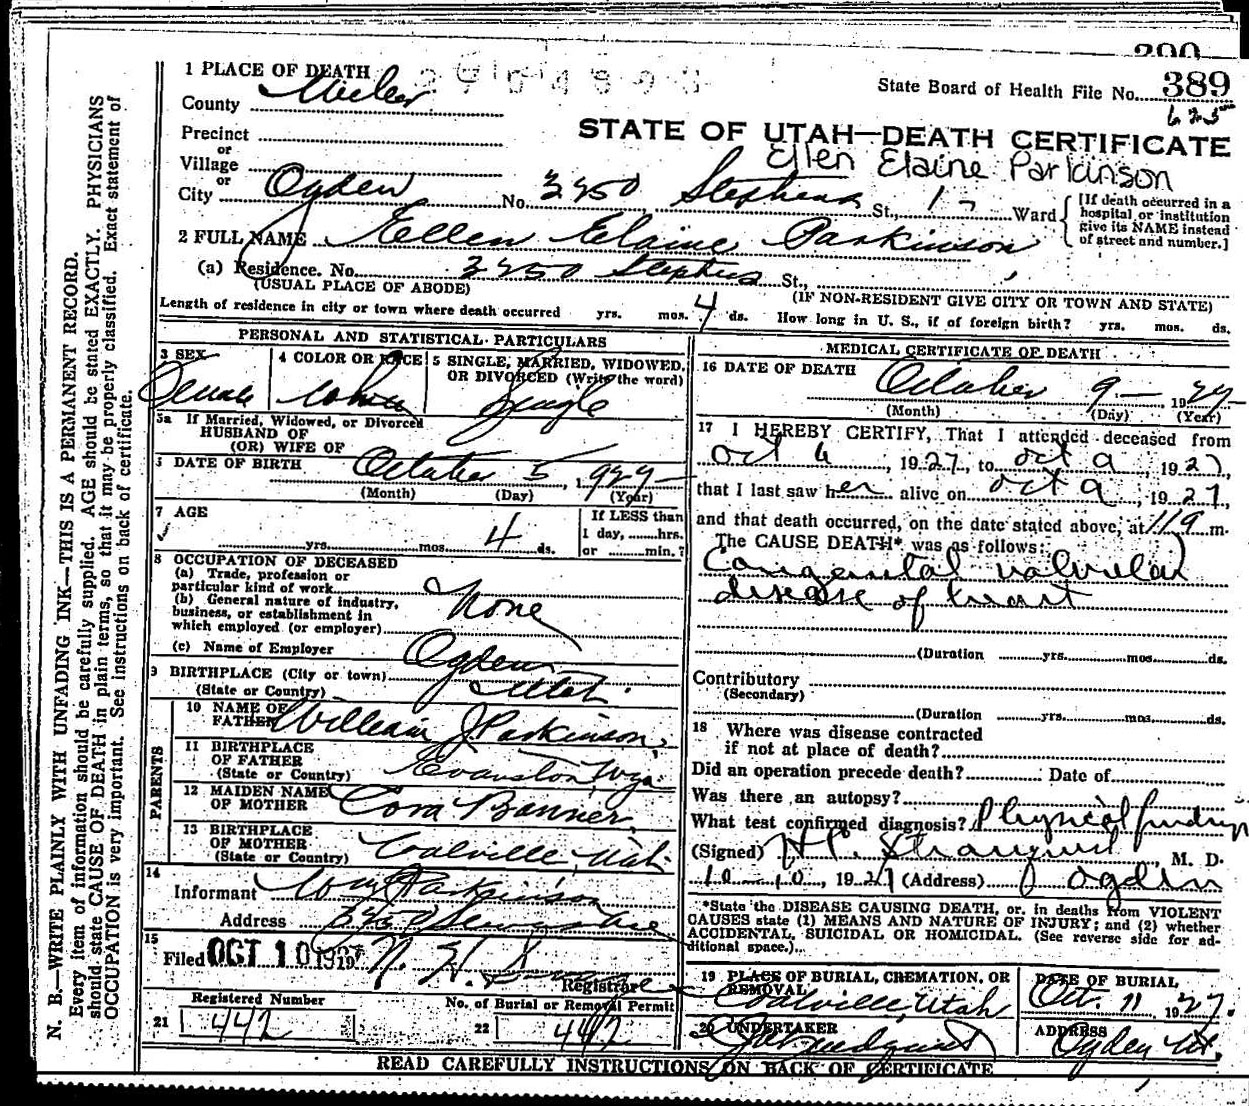 390
1 PLACE OF DEATH
State Board of Health File No. 389
County Weber
STATE OF UTAH—DEATH CERTIFICATE
Precinct
or
Village
Ellen Elaine Parkinson
or
City Ogden No. 3350 Stephens St., Ward
[If death occurred in a hospital or institution give its NAME instead of street and number.]
2 FULL NAME Ellen Elaine Parkinson
(a) Residence. No. 3350 Stephens St.,
(USUAL PLACE OF ABODE) (IF NON-RESIDENT GIVE CITY OR TOWN AND STATE)
Length of residence in city or town where death occurred yrs. mos. 4 ds. How long in U. S., if of foreign birth? yrs. mos. ds.
PERSONAL AND STATISTICAL PARTICULARS
3 SEX Female
4 COLOR OR RACE White
5 SINGLE, MARRIED, WIDOWED, OR DIVORCED (Write the word) Single
5a If Married, Widowed, or Divorced
HUSBAND OF
(OR) WIFE OF
DATE OF BIRTH October 5, 1927
(Month) (Day) (Year)
7 AGE
yrs. mos. 4 ds.
If LESS than
1 day, hrs.
or min.?
8 OCCUPATION OF DECEASED
(a) Trade, profession or
particular kind of work
(b) General nature of industry,
business, or establishment in
which employed (or employer)
None
(c) Name of Employer
9 BIRTHPLACE (City or town) Ogden
(State or Country) Utah
PARENTS
10 NAME OF FATHER William J Parkinson
11 BIRTHPLACE OF FATHER
(State or Country) Evanston, Wyo.
12 MAIDEN NAME OF MOTHER Cora Banner
13 BIRTHPLACE OF MOTHER
(State or Country) Coalville, Utah
14
Informant Wm J Parkinson
Address 3350
15
Filed OCT 10 1927 N. H.
Registrar
Registered Number
21 442
No. of Burial or Removal Permit
22 442
MEDICAL CERTIFICATE OF DEATH
16 DATE OF DEATH October 9 1927
(Month) (Day) (Year)
17 I HEREBY CERTIFY, That I attended deceased from
Oct 6, 1927, to Oct 9, 1927,
that I last saw her alive on Oct 9, 1927,
and that death occurred, on the date stated above, at m.
The CAUSE DEATH* was as follows:
Congenital valvular
disease of heart
(Duration yrs. mos. ds.
Contributory
(Secondary)
(Duration yrs. mos. ds.
18 Where was disease contracted
if not at place of death?
Did an operation precede death? Date of
Was there an autopsy?
What test confirmed diagnosis? Physical findings
(Signed) H. P. Stranquist, M. D.
10-10, 1927 (Address) Ogden
*State the DISEASE CAUSING DEATH, or, in deaths from VIOLENT
CAUSES state (1) MEANS AND NATURE OF INJURY; and (2) whether
ACCIDENTAL, SUICIDAL OR HOMICIDAL. (See reverse side for ad-
ditional space.)
19 PLACE OF BURIAL, CREMATION, OR REMOVAL
Coalville, Utah
DATE OF BURIAL
Oct. 11 1927.
20 UNDERTAKER
ADDRESS
Ogden Ut.
READ CAREFULLY INSTRUCTIONS ON BACK OF CERTIFICATE
N. B.—WRITE PLAINLY WITH UNFADING INK—THIS IS A PERMANENT RECORD.
Every item of information should be carefully supplied. AGE should be stated EXACTLY. PHYSICIANS
should state CAUSE OF DEATH in plain terms, so that it may be properly classified. Exact statement of
OCCUPATION is very important. See instructions on back of certificate.